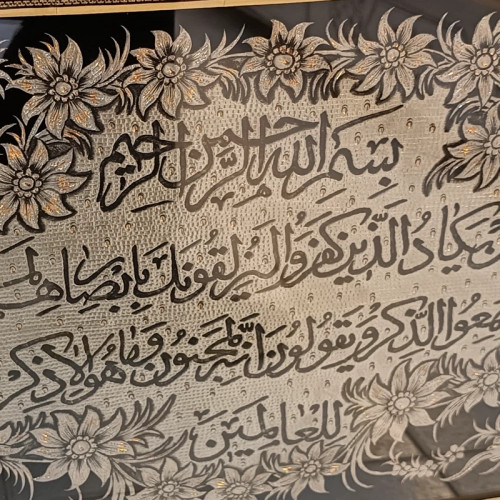 بسم الله الرحمن الرحيم
يكاد الذين كفروا ليزلقونك بابصارهم لما
سمعوا الذكر ويقولون انه لمجنون وما هو الا ذكر
للعالمين